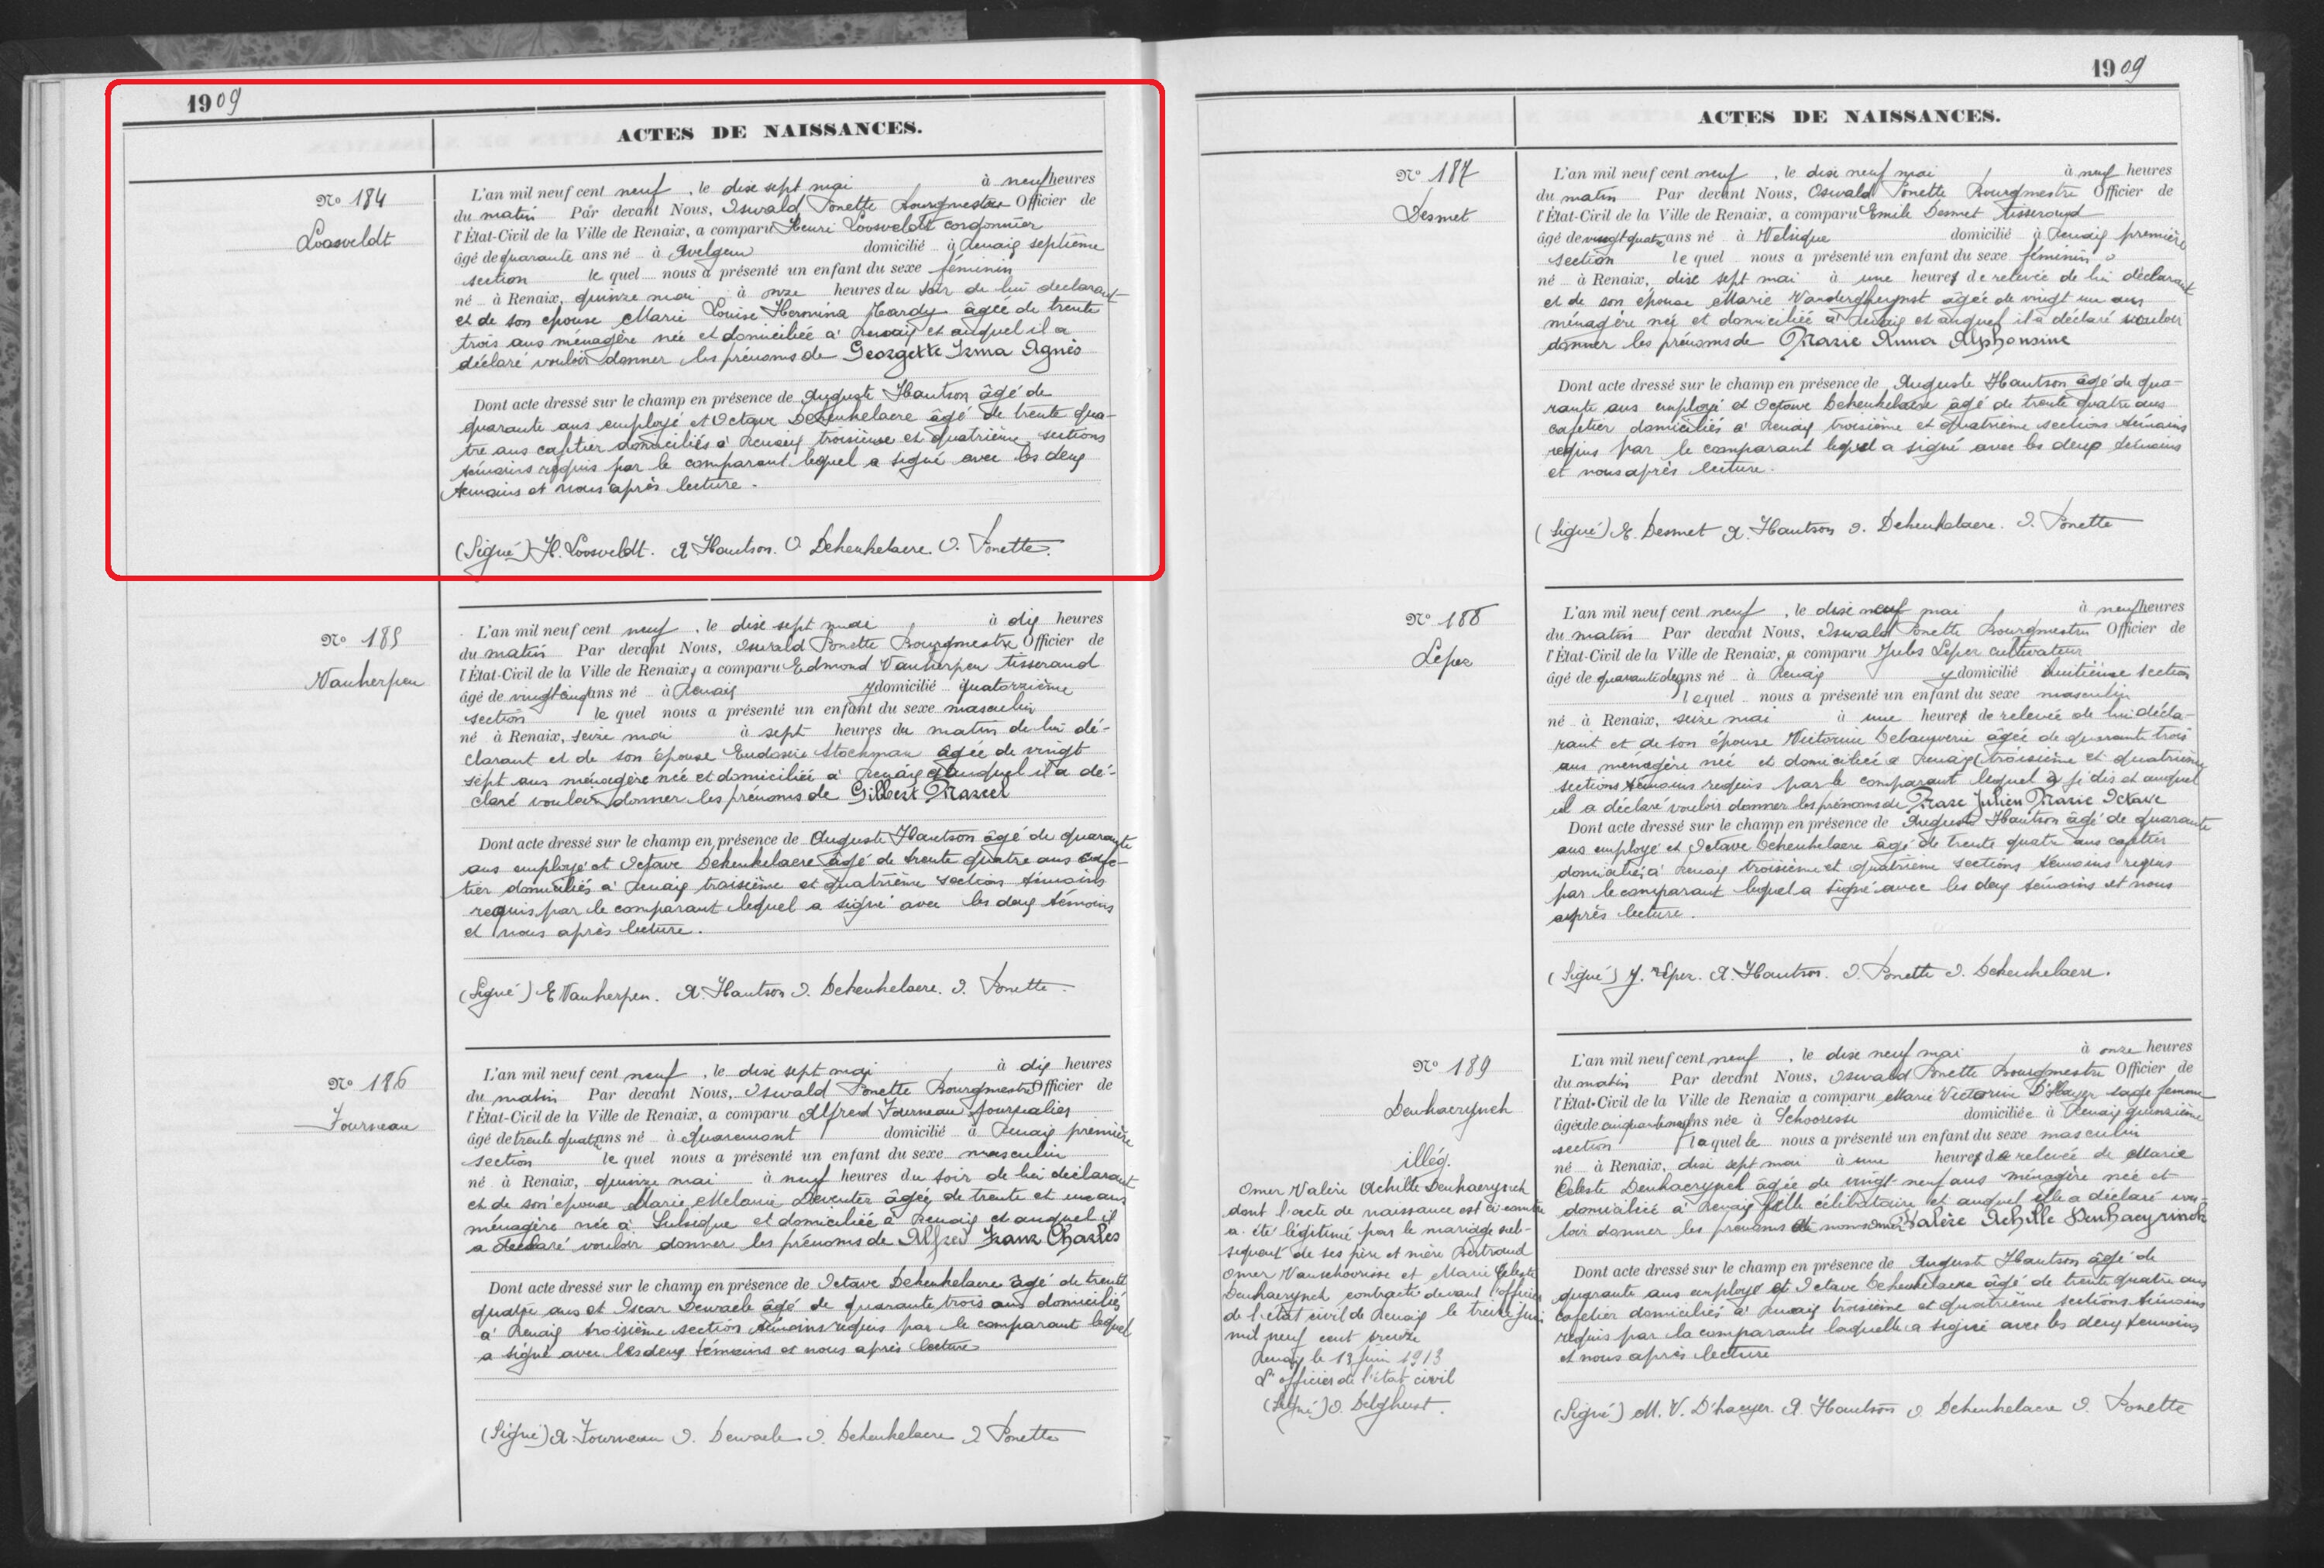 1909
ACTES DE NAISSANCES.
No 184
Loosveldt
L'an mil neuf cent neuf, le dix sept mai à neuf heures
du matin Par devant Nous, Oswald Ponette Bourgmestre Officier de
l'État-Civil de la Ville de Renaix, a comparu Henri Loosveldt cordonnier
âgé de quarante ans né à Avelgem domicilié à Renaix septième
section le quel nous a présenté un enfant du sexe féminin
né à Renaix, quinze mai à onze heures du soir de lui déclarant
et de son épouse Marie Louise Hermina Hardy âgée de trente
trois ans ménagère née et domiciliée à Renaix et auquel il a
déclaré vouloir donner les prénoms de Georgette Irma Agnès
Dont acte dressé sur le champ en présence de Auguste Hautson âgé de
quarante ans employé et Octave Dekeukelaere âgé de trente qua-
tre ans cafetier domiciliés à Renaix troisième et quatrième sections
témoins requis par le comparant lequel a signé avec les deux
témoins et nous après lecture.
(Signé) H. Loosveldt. A. Hautson. O. Dekeukelaere. O. Ponette.
No 185
Vanherpen
L'an mil neuf cent neuf, le dix sept mai à dix heures
du matin Par devant Nous, Oswald Ponette Bourgmestre Officier de
l'État-Civil de la Ville de Renaix, a comparu Edmond Vanherpen tisserand
âgé de vingt cinq ans né à Renaix y domicilié quatorzième
section le quel nous a présenté un enfant du sexe masculin
né à Renaix, seize mai à sept heures du matin de lui dé-
clarant et de son épouse Eudoxie Stockman âgée de vingt
sept ans ménagère née et domiciliée à Renaix et auquel il a dé-
claré vouloir donner les prénoms de Gilbert Marcel
Dont acte dressé sur le champ en présence de Auguste Hautson âgé de quarante
ans employé et Octave Dekeukelaere âgé de trente quatre ans cafe-
tier domiciliés à Renaix troisième et quatrième sections témoins
requis par le comparant lequel a signé avec les deux témoins
et nous après lecture.
(Signé) E Vanherpen. A. Hautson O. Dekeukelaere. O. Ponette.
No 186
Fourneau
L'an mil neuf cent neuf, le dix sept mai à dix heures
du matin Par devant Nous, Oswald Ponette Bourgmestre Officier de
l'État-Civil de la Ville de Renaix, a comparu Alfred Fourneau journalier
âgé de trente quatre ans né à Quaremont domicilié à Renaix première
section le quel nous a présenté un enfant du sexe masculin
né à Renaix, quinze mai à neuf heures du soir de lui déclarant
et de son épouse Marie Melanie Deventer âgée de trente et un ans
ménagère née à Sulsique et domiciliée à Renaix et auquel il
a déclaré vouloir donner les prénoms de Alfred Franz Charles
Dont acte dressé sur le champ en présence de Octave Dekeukelaere âgé de trente
quatre ans et Oscar Dewaele âgé de quarante trois ans domiciliés
à Renaix troisième section témoins requis par le comparant lequel
a signé avec les deux témoins et nous après lecture
(Signé) A. Fourneau O. Dewaele O. Dekeukelaere O Ponette
1909
ACTES DE NAISSANCES.
No 187
Desmet
L'an mil neuf cent neuf, le dix neuf mai à neuf heures
du matin Par devant Nous, Oswald Ponette Bourgmestre Officier de
l'État-Civil de la Ville de Renaix, a comparu Emile Desmet tisserand
âgé de vingt quatre ans né à Velsique domicilié à Renaix première
section le quel nous a présenté un enfant du sexe féminin
né à Renaix, dix sept mai à une heure de relevée de lui déclarant
et de son épouse Marie Vandergheynst âgée de vingt un ans
ménagère née et domiciliée à Renaix et auquel il a déclaré vouloir
donner les prénoms de Marie Anna Alphonsine
Dont acte dressé sur le champ en présence de Auguste Hautson âgé de qua-
rante ans employé et Octave Dekeukelaere âgé de trente quatre ans
cafetier domiciliés à Renaix troisième et quatrième sections témoins
requis par le comparant lequel a signé avec les deux témoins
et nous après lecture.
(Signé) E. Desmet A. Hautson O. Dekeukelaere. O. Ponette
No 188
Leper
L'an mil neuf cent neuf, le dix neuf mai à neuf heures
du matin Par devant Nous, Oswald Ponette Bourgmestre Officier de
l'État-Civil de la Ville de Renaix, a comparu Jules Leper cultivateur
âgé de quarante ans né à Renaix y domicilié huitième section
lequel nous a présenté un enfant du sexe masculin
né à Renaix, seize mai à une heure de relevée de lui décla-
rant et de son épouse Victorine âgée de quarante trois
ans ménagère née et domiciliée à Renaix (troisième et quatrième
sections témoins requis par le comparant lequel a) dis et auquel
il a déclaré vouloir donner les prénoms de Marc Julien Marie Octave
Dont acte dressé sur le champ en présence de Auguste Hautson âgé de quarante
ans employé et Octave Dekeukelaere âgé de trente quatre ans cafetier
domiciliés à Renaix troisième et quatrième sections témoins requis
par le comparant lequel a signé avec les deux témoins et nous
après lecture.
(Signé) J. Leper. A. Hautson. O. Ponette O. Dekeukelaere.
No 189
Denhaerynck
illég.
Omer Valère Achille Denhaerynck
dont l'acte de naissance est ci contre
a été légitimé par le mariage sub-
séquent de ses père et mère Bertrand
Omer Vanschoorisse et Marie Celeste
Denhaerynck contracté devant l'officier
de l'état civil de Renaix le treize juin
mil neuf cent treize
Renaix le 13 juin 1913
L'officier de l'état civil
(Signé) O. Delghust.
L'an mil neuf cent neuf, le dix neuf mai à onze heures
du matin Par devant Nous, Oswald Ponette Bourgmestre Officier de
l'État-Civil de la Ville de Renaix a comparu Marie Victorine D'Haeyer sage femme
âgée de cinquante neuf ans née à Schoorisse domiciliée à Renaix quinzième
section laquelle nous a présenté un enfant du sexe masculin
né à Renaix, dix sept mai à une heure de relevée de Marie
Celeste Denhaerynck âgée de vingt neuf ans ménagère née et
domiciliée à Renaix fille célibataire et auquel elle a déclaré vou-
loir donner les prénoms et nom Omer Valère Achille Denhaerynck
Dont acte dressé sur le champ en présence de Auguste Hautson âgé de
quarante ans employé et Octave Dekeukelaere âgé de trente quatre ans
cafetier domiciliés à Renaix troisième et quatrième sections témoins
requis par la comparante laquelle a signé avec les deux témoins
et nous après lecture
(Signé) M. V. D'haeyer. A. Hautson O Dekeukelaere O. Ponette